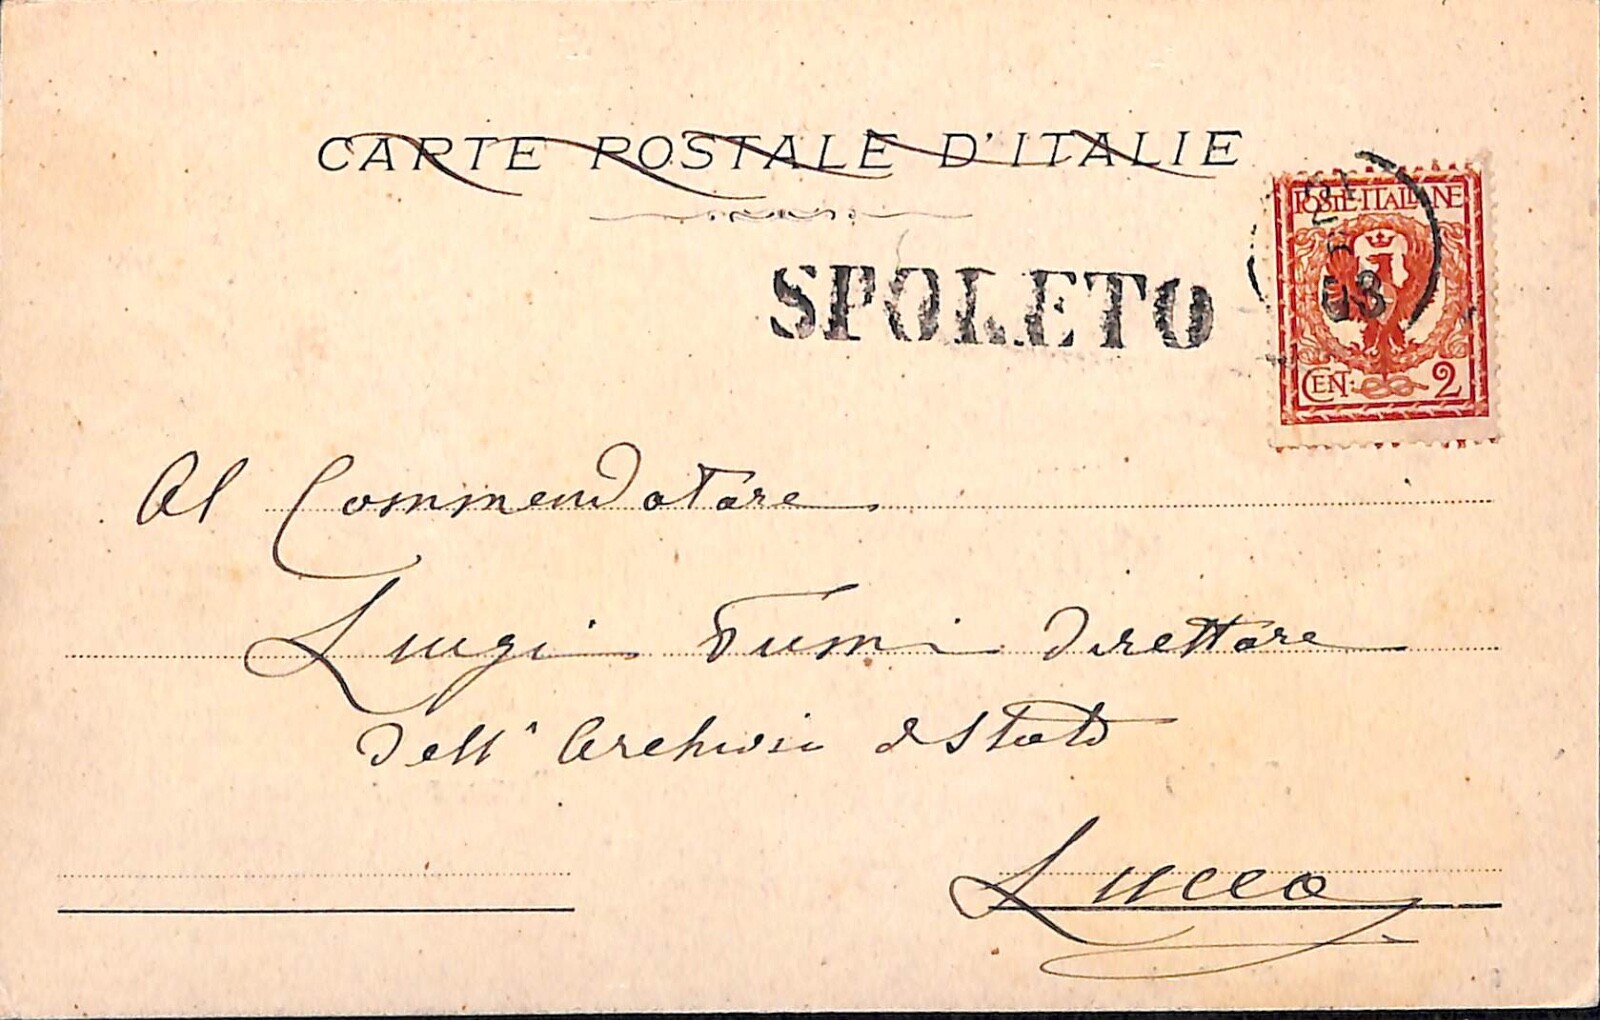 CARTE POSTALE D'ITALIE
POSTE·ITALIANE
SPOLETO
CEN: 2
Al Commendatore
Luigi Fumi direttore
dell' Archivio d Stato
Lucca